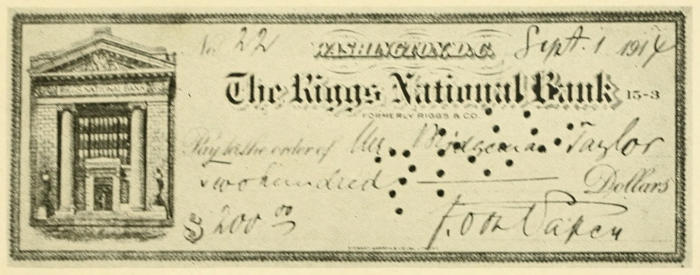 No. 22 WASHINGTON, D.C. Sept. 1 1914
RIGGS NATIONAL BANK
The Riggs National Bank 15-3
FORMERLY RIGGS & CO.
Pay to the order of Mr. Bridgeman Taylor
Two hundred Dollars
$200.00 F. von Papen